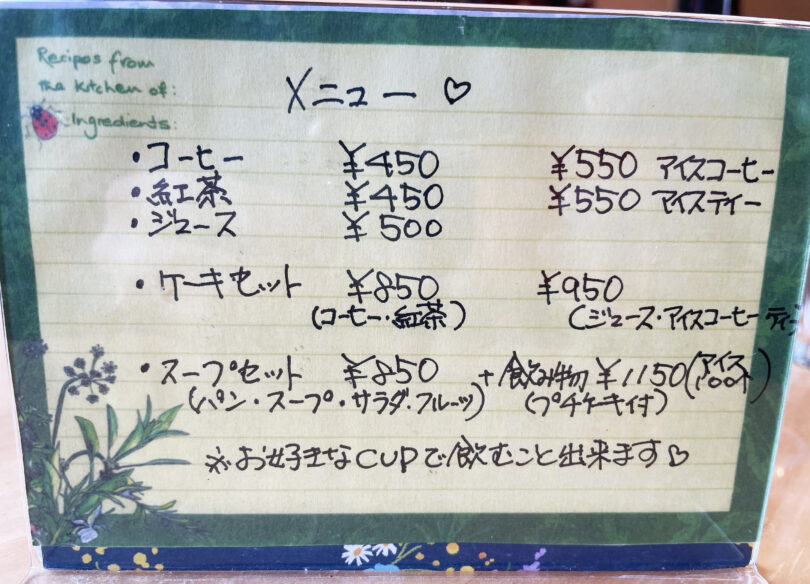 Recipes from
the kitchen of:
Ingredients:
メニュー ♡
・コーヒー ¥450 ¥550 アイスコーヒー
・紅茶 ¥450 ¥550 アイスティー
・ジュース ¥500
・ケーキセット ¥850 ¥950
(コーヒー・紅茶) (ジュース・アイスコーヒー ティー
・スープセット ¥850 +飲み物 ¥1150 (アイス
(パン・スープ・サラダ.フルーツ) (プチケーキ付)
※お好きなCUPで飲むこと出来ます♡